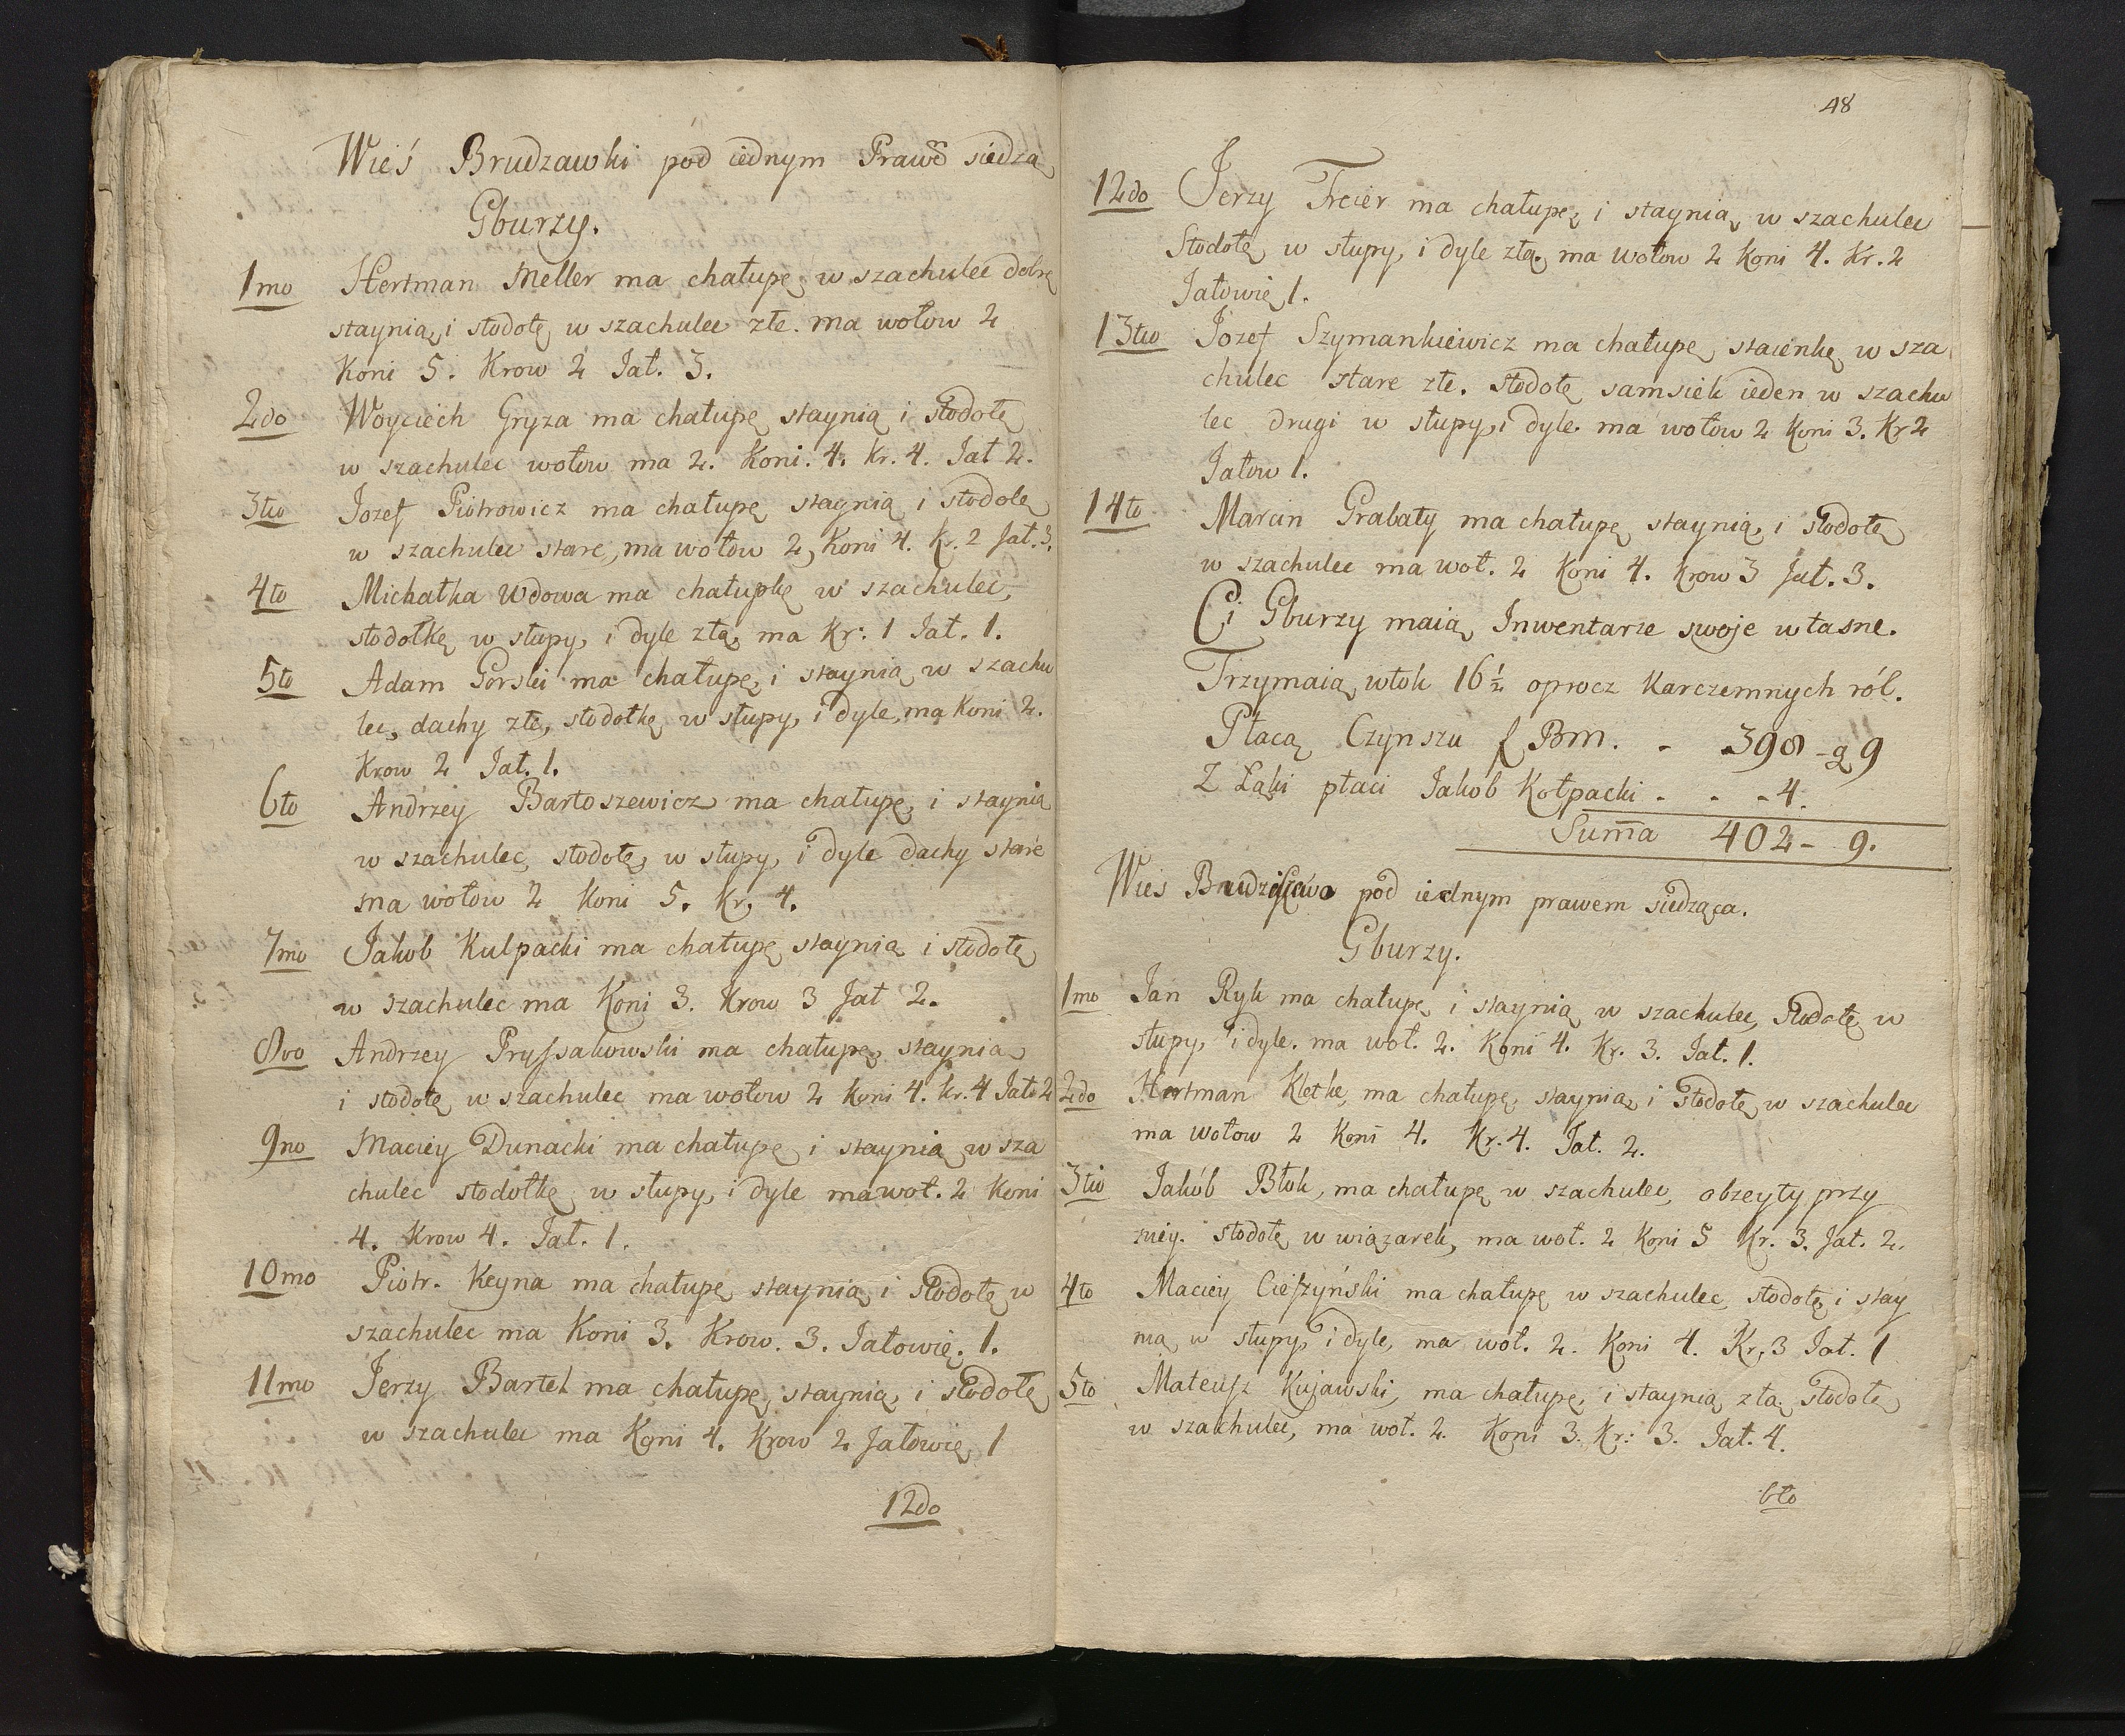 Wieś Brudzawki pod iednym Prawẽ siedzą
Gburzy.
1mo Hertman Meller ma chałupę w szachulec dobrę
staynią, i stodołę w szachulec złe. ma wołow 2
Koni 5. Krow 2 Jał. 3.
2do Woyciech Gryza ma chałupę staynią i stodołę
w szachulec wołow ma 2. Koni. 4. Kr. 4. Jał 2.
3tio Jozef Piotrowicz ma chałupę staynią i stodołę
w szachulec stare, ma wołow 2, Koni 4. Kr. 2 Jał. 3.
4to Michałka Wdowa ma chałupkę w szachulec,
stodołkę w słupy, i dyle złą, ma Kr: 1 Jał. 1.
5to Adam Gorski ma chałupę, i staynią w szachu
lec, dachy złe, stodołkę w słupy, i dyle, ma Koni 2.
Krow 2 Jał. 1.
6to Andrzey Bartoszewicz ma chałupę, i staynią
w szachulec, stodołę, w słupy, i dyle dachy stare
ma wołow 2 Koni 5. Kr. 4.
7mo Jakob Kulpacki ma chałupę staynią i stodołę
w szachulec ma Koni 3. Krow 3 Jał 2.
8vo Andrzey Pryssakowski ma chałupę, staynią
i stodołę w szachulec ma wołow 2 Koni 4. Kr. 4 Jał 2
9no Maciey Dunacki ma chałupę i staynią w sza
chulec stodołkę w słupy, i dyle ma woł. 2 Koni
4. Krow 4. Jał. 1.
10mo Piotr. Keyna ma chałupę staynią, i stodołę w
szachulec ma Koni 3. Krow. 3. Jałowię. 1.
11mo Jerzy Bartel ma chałupę, staynią, i stodołę
w szachulec ma Koni 4. Krow 2 Jałowię 1
12do
48
12do Jerzy Freier ma chałupę, i staynią w szachulec
Stodołę w słupy, i dyle złą, ma wołow 2 Koni 4. Kr. 2
Jałowię 1.
13tio Jozef Szymankiewicz ma chałupę, staienkę w sza
chulec stare złe. Stodołę samsiek ieden w szachu
lec drugi w słupy, i dyle. ma wołow 2 Koni 3. Kr 2
Jałow 1.
14to Marcin Grabaty ma chałupę staynią, i stodołę
w szachulec ma woł. 2 Koni 4. Krow 3 Jał. 3.
Ci Gburzy maią Inwentarze swoje własne.
Trzymaią włok 16½ oprocz Karczemnych ról.
Płacą Czynszu f Bm. - 398 - g 9
Z Łąki płaci Jakob Kołpacki - - - 4.
Sum̃a 402 - 9.
Wies Brudzisława pod iednym prawem siedząca.
Gburzy.
1mo Jan Ryk ma chałupę i staynią w szachulec, Stodołę w
słupy, i dyle. ma woł. 2. Koni 4. Kr. 3. Jał. 1.
2do Hertman Kletke, ma chałupę, staynią, i Stodołę w szachulec
ma wołow 2 Koni 4. Kr. 4. Jał. 2.
3tio Jakób Błok, ma chałupę w szachulec, obzeyty przy
niey. stodołę w wiązarek, ma woł. 2 Koni 5 Kr. 3. Jał. 2.
4to Maciey Cieszyński ma chałupę w szachulec, stodołę, i stay
nią w słupy, i dyle, ma woł. 2. Koni 4. Kr. 3 Jał. 1
5to Mateusz Kujawski, ma chałupę, i staynią złą. Stodołę
w szachulec, ma woł. 2. Koni 3. Kr: 3. Jał. 4.
6to